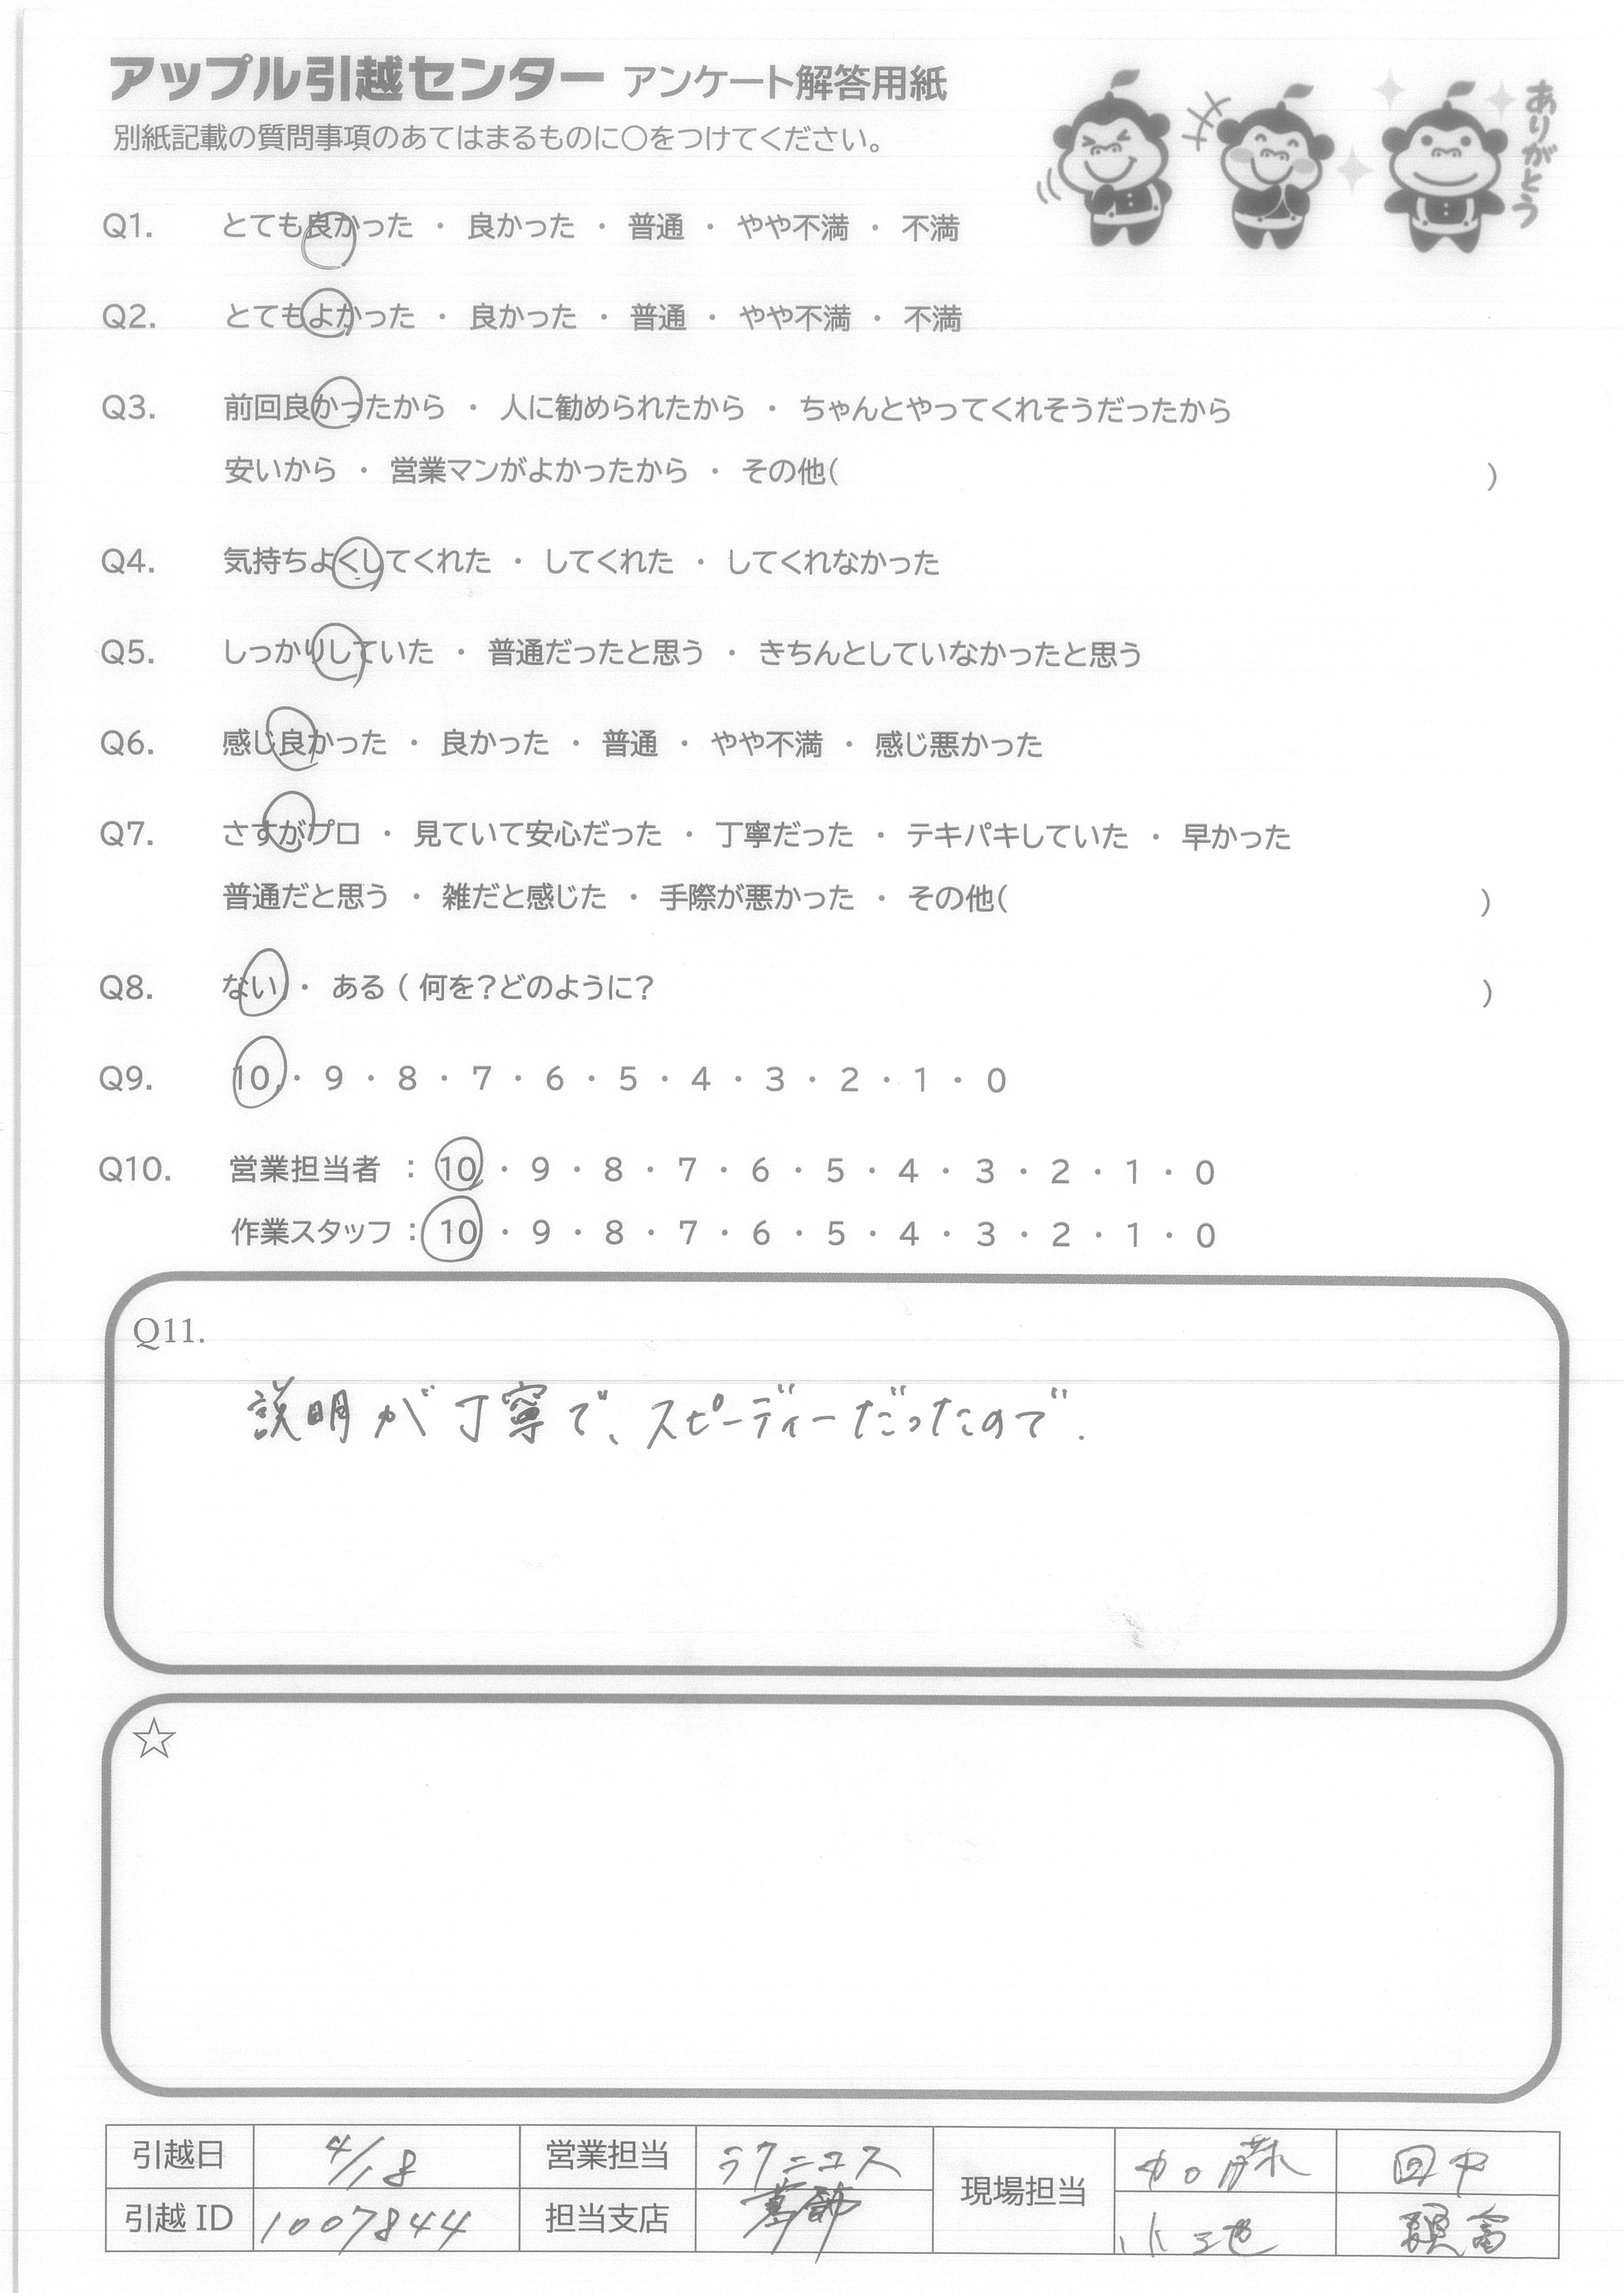 アップル引越センター アンケート解答用紙
別紙記載の質問事項のあてはまるものに〇をつけてください。
ありがとう
Q1. とても良かった ・ 良かった ・ 普通 ・ やや不満 ・ 不満
Q2. とてもよかった ・ 良かった ・ 普通 ・ やや不満 ・ 不満
Q3. 前回良かったから ・ 人に勧められたから ・ ちゃんとやってくれそうだったから
安いから ・ 営業マンがよかったから ・ その他( )
Q4. 気持ちよくしてくれた ・ してくれた ・ してくれなかった
Q5. しっかりしていた ・ 普通だったと思う ・ きちんとしていなかったと思う
Q6. 感じ良かった ・ 良かった ・ 普通 ・ やや不満 ・ 感じ悪かった
Q7. さすがプロ ・ 見ていて安心だった ・ 丁寧だった ・ テキパキしていた ・ 早かった
普通だと思う ・ 雑だと感じた ・ 手際が悪かった ・ その他( )
Q8. ない ・ ある ( 何を?どのように? )
Q9. 10 ・ 9 ・ 8 ・ 7 ・ 6 ・ 5 ・ 4 ・ 3 ・ 2 ・ 1 ・ 0
Q10. 営業担当者 : 10 ・ 9 ・ 8 ・ 7 ・ 6 ・ 5 ・ 4 ・ 3 ・ 2 ・ 1 ・ 0
作業スタッフ : 10 ・ 9 ・ 8 ・ 7 ・ 6 ・ 5 ・ 4 ・ 3 ・ 2 ・ 1 ・ 0
Q11.
説明が丁寧で、スピーディーだったので.
☆
引越日 4/18 営業担当 ラクニコス 現場担当 加藤 田中
引越ID 1007844 担当支店 葛飾 小池